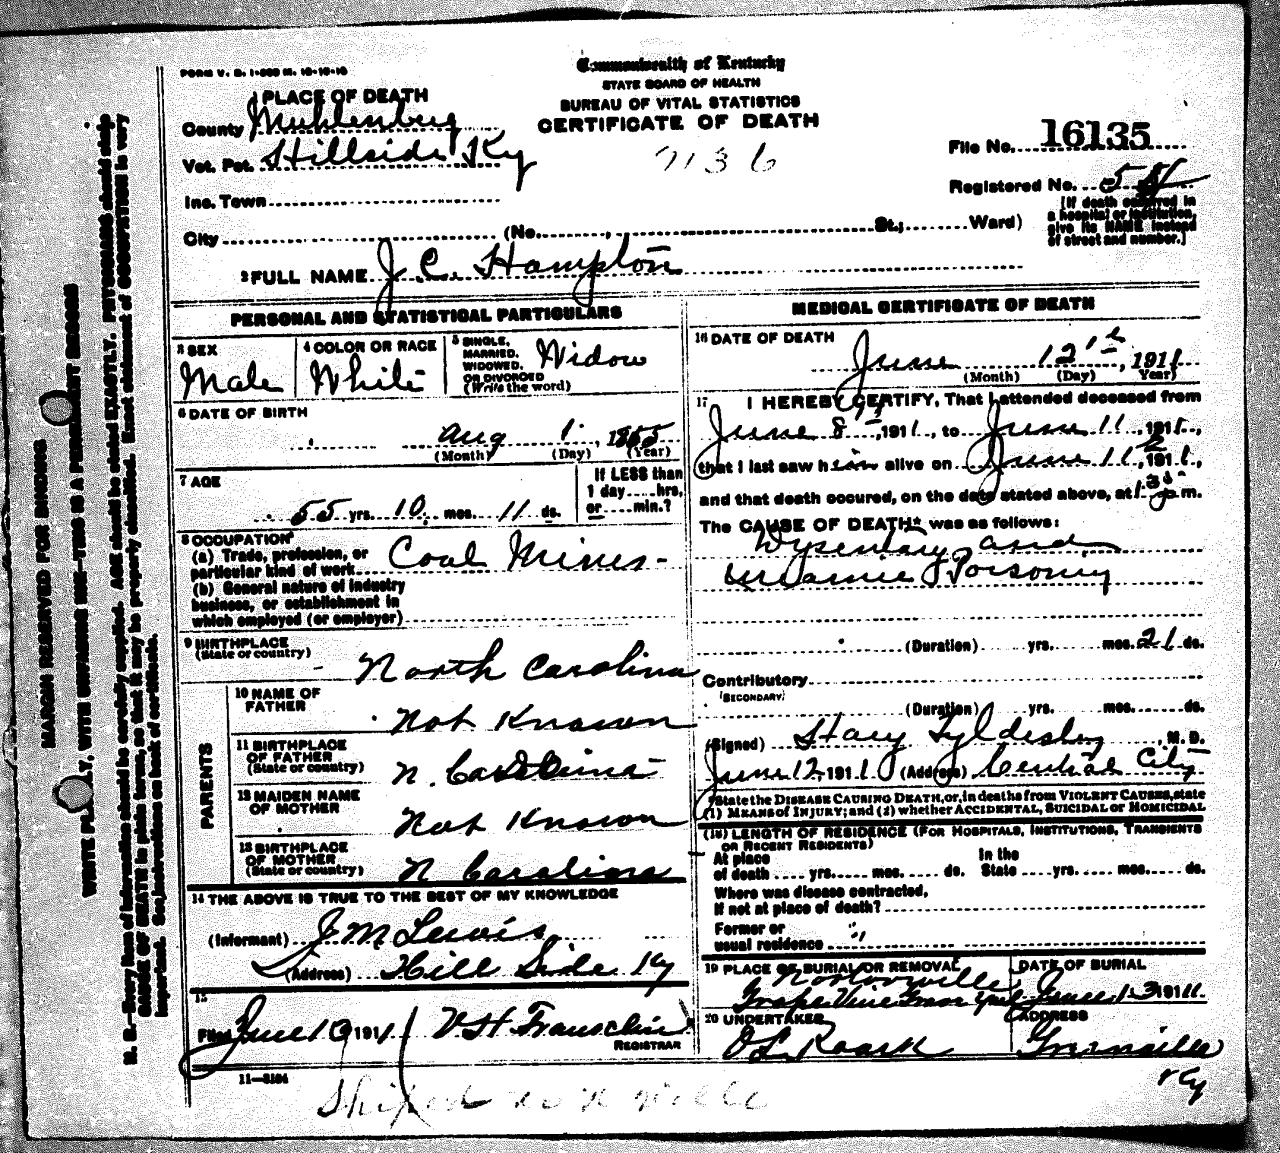 FORM V. S. 1-
Commonwealth of Kentucky
STATE BOARD OF HEALTH
BUREAU OF VITAL STATISTICS
CERTIFICATE OF DEATH
7136
1 PLACE OF DEATH
County Muhlenberg
Vot. Pct. Hillside Ky
Inc. Town
City (No. , St.; Ward)
File No. 16135
Registered No. 5
[If death occurred in
a hospital or institution,
give its NAME instead
of street and number.]
2 FULL NAME J. C. Hampton
PERSONAL AND STATISTICAL PARTICULARS
3 SEX
Male
4 COLOR OR RACE
White
5 SINGLE,
MARRIED,
WIDOWED,
OR DIVORCED
(Write the word)
Widow
6 DATE OF BIRTH
Aug 1, 1855
(Month) (Day) (Year)
7 AGE
55 yrs. 10 mos. 11 ds.
If LESS than
1 day ....hrs,
or ....min.?
8 OCCUPATION
(a) Trade, profession, or
particular kind of work Coal Miner
(b) General nature of industry
business, or establishment in
which employed (or employer)
9 BIRTHPLACE
(State or country)
North Carolina
PARENTS
10 NAME OF
FATHER
Not Known
11 BIRTHPLACE
OF FATHER
(State or country)
N. Carolina
12 MAIDEN NAME
OF MOTHER
Not Known
13 BIRTHPLACE
OF MOTHER
(State or country)
N Carolina
14 THE ABOVE IS TRUE TO THE BEST OF MY KNOWLEDGE
(Informant) J M Lewis
(Address) Hill Side Ky
15
Filed June 1 1911 V H
REGISTRAR
11-
MEDICAL CERTIFICATE OF DEATH
16 DATE OF DEATH
June 12th, 1911
(Month) (Day) Year)
17 I HEREBY CERTIFY, That I attended deceased from
June 8th, 1911, to June 11, 1911,
that I last saw him alive on June 11th, 1911,
and that death occured, on the date stated above, at m.
The CAUSE OF DEATH* was as follows:
Dysentary and
Uraemic Poisoning
(Duration) yrs. mos. 21 ds.
Contributory
(SECONDARY)
(Duration) yrs. mos. ds.
(Signed) , M. D.
June 12 1911 (Address) Central City
*State the DISEASE CAUSING DEATH, or, in deaths from VIOLENT CAUSES, state
(1) MEANS of INJURY; and (2) whether ACCIDENTAL, SUICIDAL or HOMICIDAL
(18) LENGTH OF RESIDENCE (FOR HOSPITALS, INSTITUTIONS, TRANSIENTS
OR RECENT RESIDENTS)
At place
of death .... yrs. mos. ds.
In the
State .... yrs. mos. ds.
Where was disease contracted,
If not at place of death?
Former or
usual residence
19 PLACE OF BURIAL OR REMOVAL
Nortonville
Grape Vine Grave Yard
DATE OF BURIAL
June 13 1911
20 UNDERTAKER
O L Roark
ADDRESS
Greenville
Ky
Shiped to N ville
MARGIN RESERVED FOR BINDING
WRITE PLAINLY, WITH UNFADING INK—THIS IS A PERMANENT RECORD
N. B.—Every item of information should be carefully supplied. AGE should be stated EXACTLY. PHYSICIANS should state
CAUSE OF DEATH in plain terms, so that it may be properly classified. Exact statement of OCCUPATION is very
important. See instructions on back of certificate.